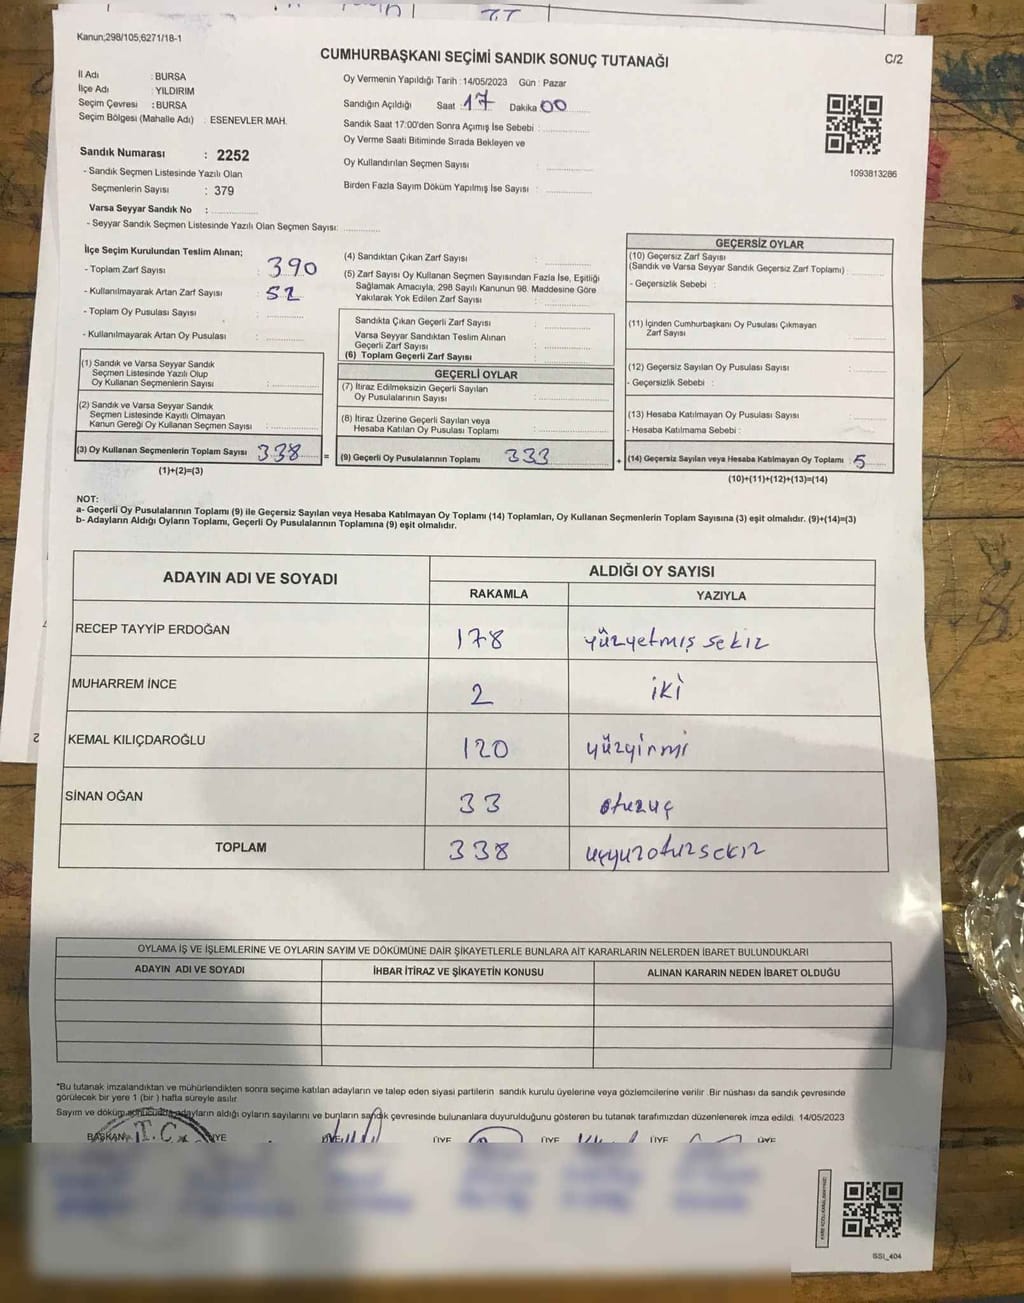 Kanun;298/105,6271/18-1
CUMHURBAŞKANI SEÇİMİ SANDIK SONUÇ TUTANAĞI
C/2
İl Adı : BURSA
İlçe Adı : YILDIRIM
Seçim Çevresi : BURSA
Seçim Bölgesi (Mahalle Adı) : ESENEVLER MAH.
Sandık Numarası : 2252
- Sandık Seçmen Listesinde Yazılı Olan
Seçmenlerin Sayısı : 379
Varsa Seyyar Sandık No :
- Seyyar Sandık Seçmen Listesinde Yazılı Olan Seçmen Sayısı:
Oy Vermenin Yapıldığı Tarih :14/05/2023 Gün : Pazar
Sandığın Açıldığı Saat :17 Dakika 00
Sandık Saat 17:00'den Sonra Açımış İse Sebebi :
Oy Verme Saati Bitiminde Sırada Bekleyen ve
Oy Kullandırılan Seçmen Sayısı :
Birden Fazla Sayım Döküm Yapılmış İse Sayısı :
1093813286
İlçe Seçim Kurulundan Teslim Alınan;
- Toplam Zarf Sayısı : 390
- Kullanılmayarak Artan Zarf Sayısı : 52
- Toplam Oy Pusulası Sayısı :
- Kullanılmayarak Artan Oy Pusulası :
(1) Sandık ve Varsa Seyyar Sandık
Seçmen Listesinde Yazılı Olup
Oy Kullanan Seçmenlerin Sayısı :
(2) Sandık ve Varsa Seyyar Sandık
Seçmen Listesinde Kayıtlı Olmayan
Kanun Gereği Oy Kullanan Seçmen Sayısı :
(3) Oy Kullanan Seçmenlerin Toplam Sayısı 338 =
(1)+(2)=(3)
(4) Sandıktan Çıkan Zarf Sayısı :
(5) Zarf Sayısı Oy Kullanan Seçmen Sayısından Fazla İse, Eşitliği
Sağlamak Amacıyla, 298 Sayılı Kanunun 98. Maddesine Göre
Yakılarak Yok Edilen Zarf Sayısı :
Sandıkta Çıkan Geçerli Zarf Sayısı :
Varsa Seyyar Sandıktan Teslim Alınan
Geçerli Zarf Sayısı :
(6) Toplam Geçerli Zarf Sayısı :
GEÇERLİ OYLAR
(7) İtiraz Edilmeksizin Geçerli Sayılan
Oy Pusulalarının Sayısı :
(8) İtiraz Üzerine Geçerli Sayılan veya
Hesaba Katılan Oy Pusulası Toplamı :
(9) Geçerli Oy Pusulalarının Toplamı 333 +
GEÇERSİZ OYLAR
(10) Geçersiz Zarf Sayısı
(Sandık ve Varsa Seyyar Sandık Geçersiz Zarf Toplamı) :
- Geçersizlik Sebebi :
(11) İçinden Cumhurbaşkanı Oy Pusulası Çıkmayan
Zarf Sayısı :
(12) Geçersiz Sayılan Oy Pusulası Sayısı :
- Geçersizlik Sebebi :
(13) Hesaba Katılmayan Oy Pusulası Sayısı :
- Hesaba Katılmama Sebebi :
(14) Geçersiz Sayılan veya Hesaba Katılmayan Oy Toplamı : 5
(10)+(11)+(12)+(13)=(14)
NOT:
a- Geçerli Oy Pusulalarının Toplamı (9) ile Geçersiz Sayılan veya Hesaba Katılmayan Oy Toplamı (14) Toplamları, Oy Kullanan Seçmenlerin Toplam Sayısına (3) eşit olmalıdır. (9)+(14)=(3)
b- Adayların Aldığı Oyların Toplamı, Geçerli Oy Pusulalarının Toplamına (9) eşit olmalıdır.
ADAYIN ADI VE SOYADI
ALDIĞI OY SAYISI
RAKAMLA YAZIYLA
RECEP TAYYİP ERDOĞAN 178 yüzyetmiş sekiz
MUHARREM İNCE 2 iki
KEMAL KILIÇDAROĞLU 120 yüzyirmi
SİNAN OĞAN 33 otuzuç
TOPLAM 338 uçyuzotuzsekız
OYLAMA İŞ VE İŞLEMLERİNE VE OYLARIN SAYIM VE DÖKÜMÜNE DAİR ŞİKAYETLERLE BUNLARA AİT KARARLARIN NELERDEN İBARET BULUNDUKLARI
ADAYIN ADI VE SOYADI İHBAR İTİRAZ VE ŞİKAYETİN KONUSU ALINAN KARARIN NEDEN İBARET OLDUĞU
*Bu tutanak imzalandıktan ve mühürlendikten sonra seçime katılan adayların ve talep eden siyasi partilerin sandık kurulu üyelerine veya gözlemcilerine verilir .Bir nüshası da sandık çevresinde
görülecek bir yere 1 (bir ) hafta süreyle asılır.
Sayım ve döküm sonucunda adayların aldığı oyların sayılarını ve bunların sandık çevresinde bulunanlara duyurulduğunu gösteren bu tutanak tarafımızdan düzenlenerek imza edildi. 14/05/2023
BAŞKAN ÜYE ÜYE ÜYE ÜYE ÜYE ÜYE
T.C.
SSI_404